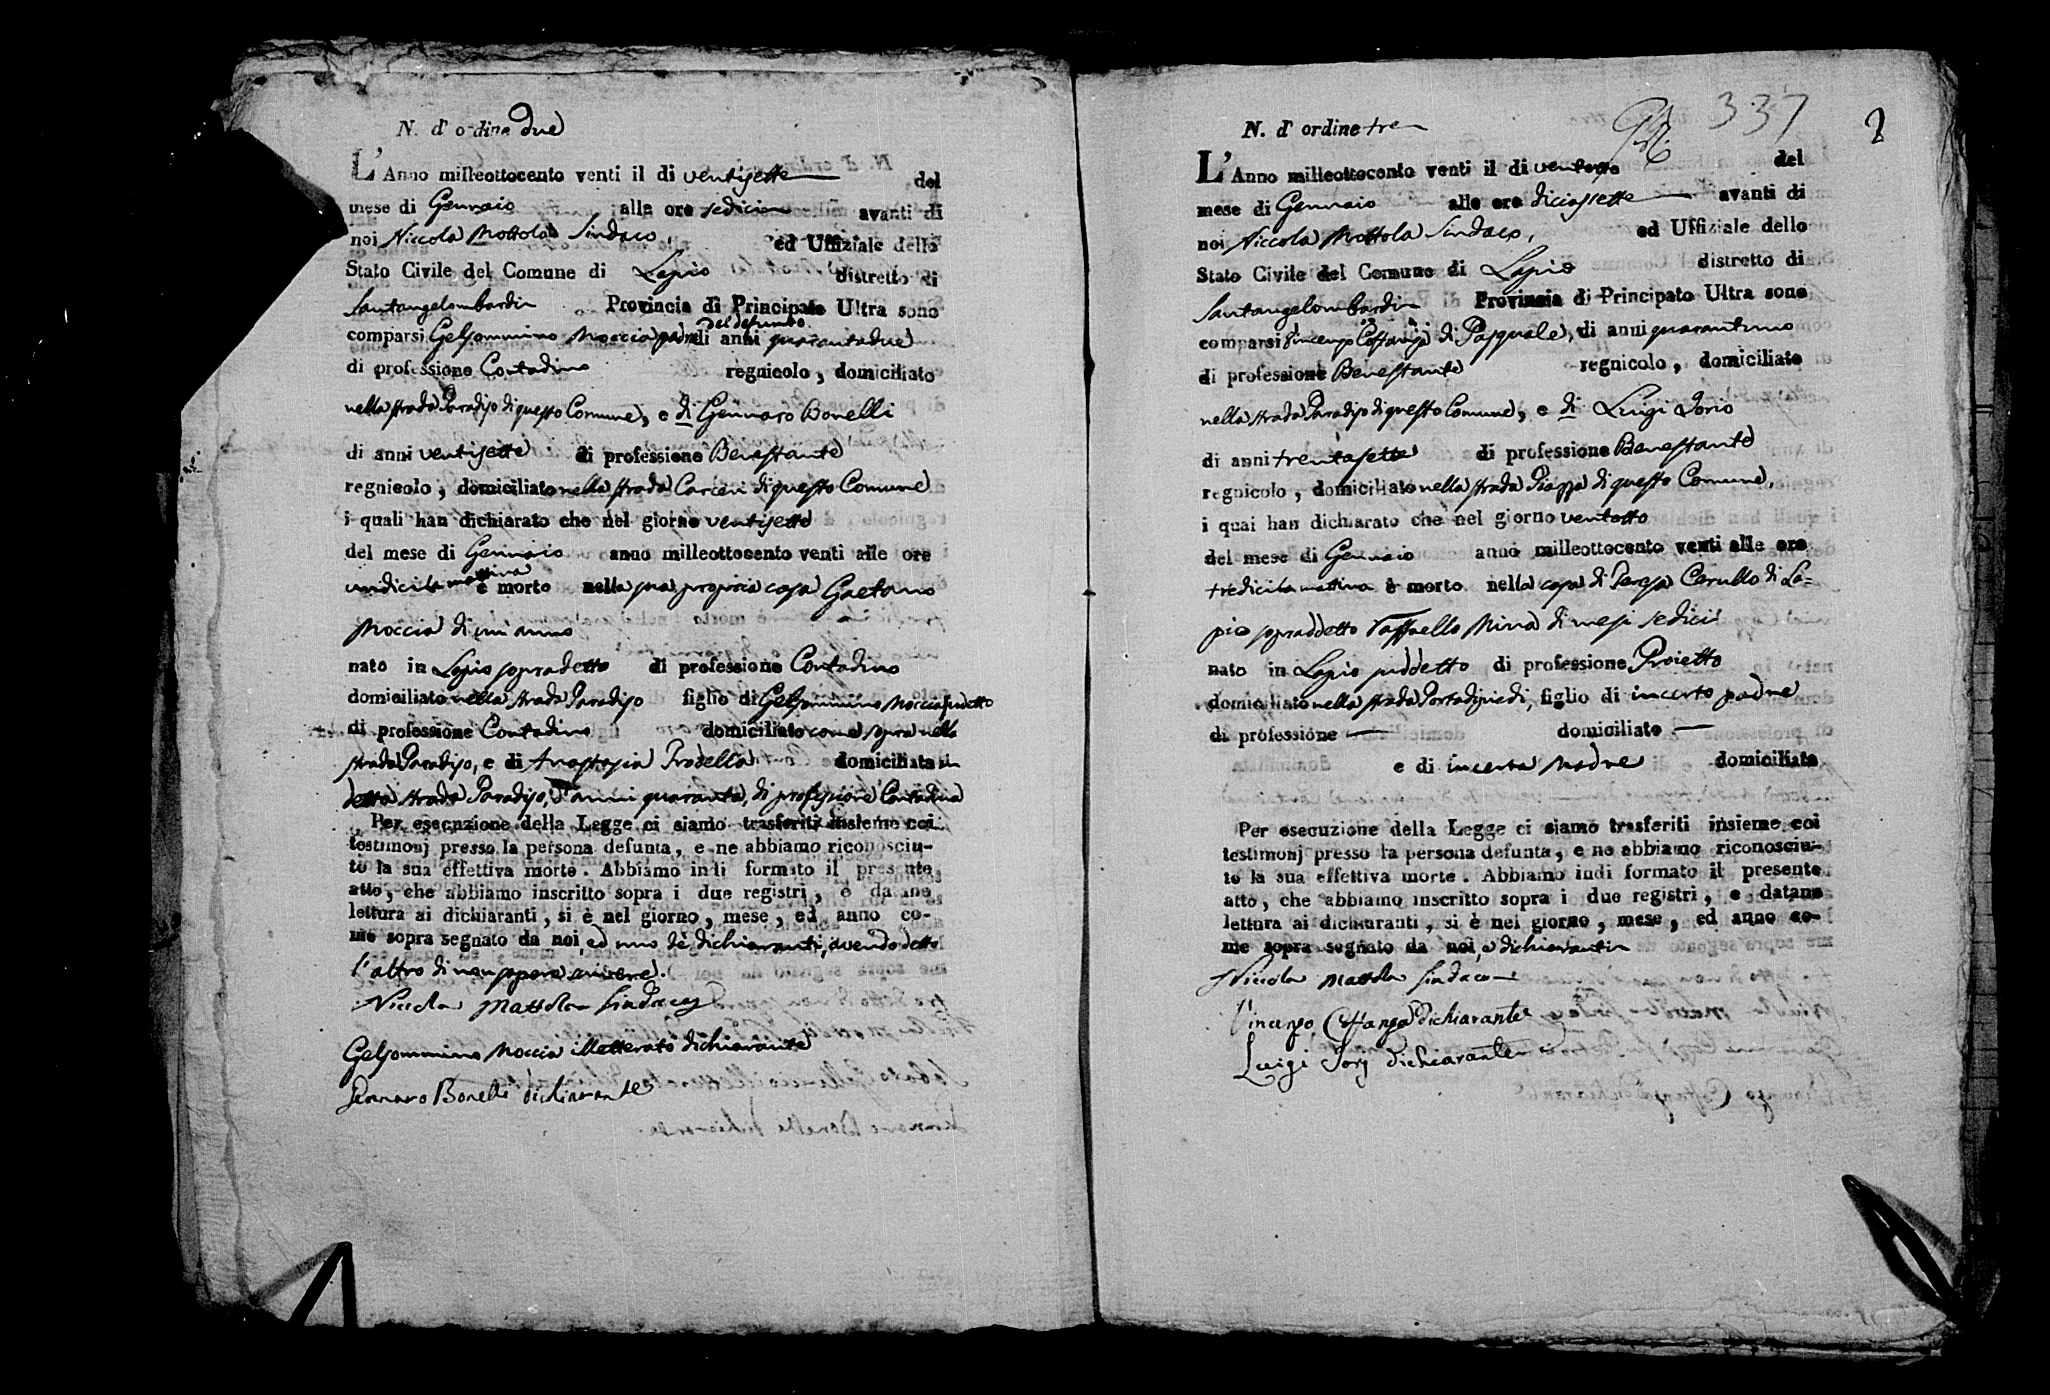 N. d' ordine due
L' Anno milleottocento venti il di ventisette del
mese di Gennaio alle ore sedici avanti di
noi Niccola Mottola Sindaco, ed Uffiziale dello
Stato Civile del Comune di Lapio distretto di
Santangelombardi Provincia di Principato Ultra sono
del defunto
comparsi Gelsommino Moccia padre di anni quarantadue
di professione Contadino regnicolo, domiciliato
nella strada Paradiso di questo Comune, e di Gennaro Bonelli
di anni ventisette di professione Benestante
regnicolo, domiciliato nella strada Carceri di questo Comune
i quali han dichiarato che nel giorno ventisette
del mese di Gennaio anno milleottocento venti alle ore
undici la mattina è morto nella sua propria casa Gaetano
Moccia di un' anno
nato in Lapio sopradetto di professione Contadino
domiciliato nella strada Paradiso figlio di Gelsommino Moccia sudetto
di professione Contadino domiciliato come sopra nella
strada Paradiso, e di Anastasia Prodella domiciliata in
detta strada Paradiso, d'anni quaranta, di professione Contadina
Per esecuzione della Legge ci siamo trasferiti insieme coi
testimonj presso la persona defunta, e ne abbiamo riconosciu-
to la sua effettiva morte. Abbiamo indi formato il presente
atto, che abbiamo inscritto sopra i due registri, e datane
lettura ai dichiaranti, si è nel giorno, mese, ed anno co-
me sopra segnato da noi, ed uno de' dichiaranti, avendo detto
l'altro di non sapere scrivere.
Niccola Mottola Sindaco
Gelsommino Moccia illetterato dichiarante
Gennaro Bonelli dichiarante
337
2
N. d' ordine tre
L' Anno milleottocento venti il di ventotto del
mese di Gennaio alle ore diciassette avanti di
noi Niccola Mottola Sindaco, ed Uffiziale dello
Stato Civile del Comune di Lapio distretto di
Santangelombardi Provincia di Principato Ultra sono
comparsi Vincenzo Coffanza di Pasquale, di anni quarantuno
di professione Benestante regnicolo, domiciliato
nella strada Paradiso di questo Comune, e di Luigi Iorio
di anni trentasette di professione Benestante
regnicolo, domiciliato nella strada Piazza di questo Comune,
i quai han dichiarato che nel giorno ventotto
del mese di Gennaio anno milleottocento venti alle ore
tredici la mattina è morto nella casa di Teresa Carullo di La=
pio sopraddetto Raffaello Mirra di mesi sedici
nato in Lapio suddetto di professione Proietto
domiciliato nella strada Portadipiedi, figlio di incerto padre
di professione — domiciliato —
e di incerta Madre domiciliata
Per esecuzione della Legge ci siamo trasferiti insieme coi
testimonj presso la persona defunta, e ne abbiamo riconosciu-
to la sua effettiva morte. Abbiamo indi formato il presente
atto, che abbiamo inscritto sopra i due registri, e datane
lettura ai dichiaranti, si è nel giorno, mese, ed anno co-
me sopra segnato da noi, e dichiaranti
Niccola Mottola Sindaco
Vincenzo Coffanza dichiarante
Luigi Iorij dichiarante